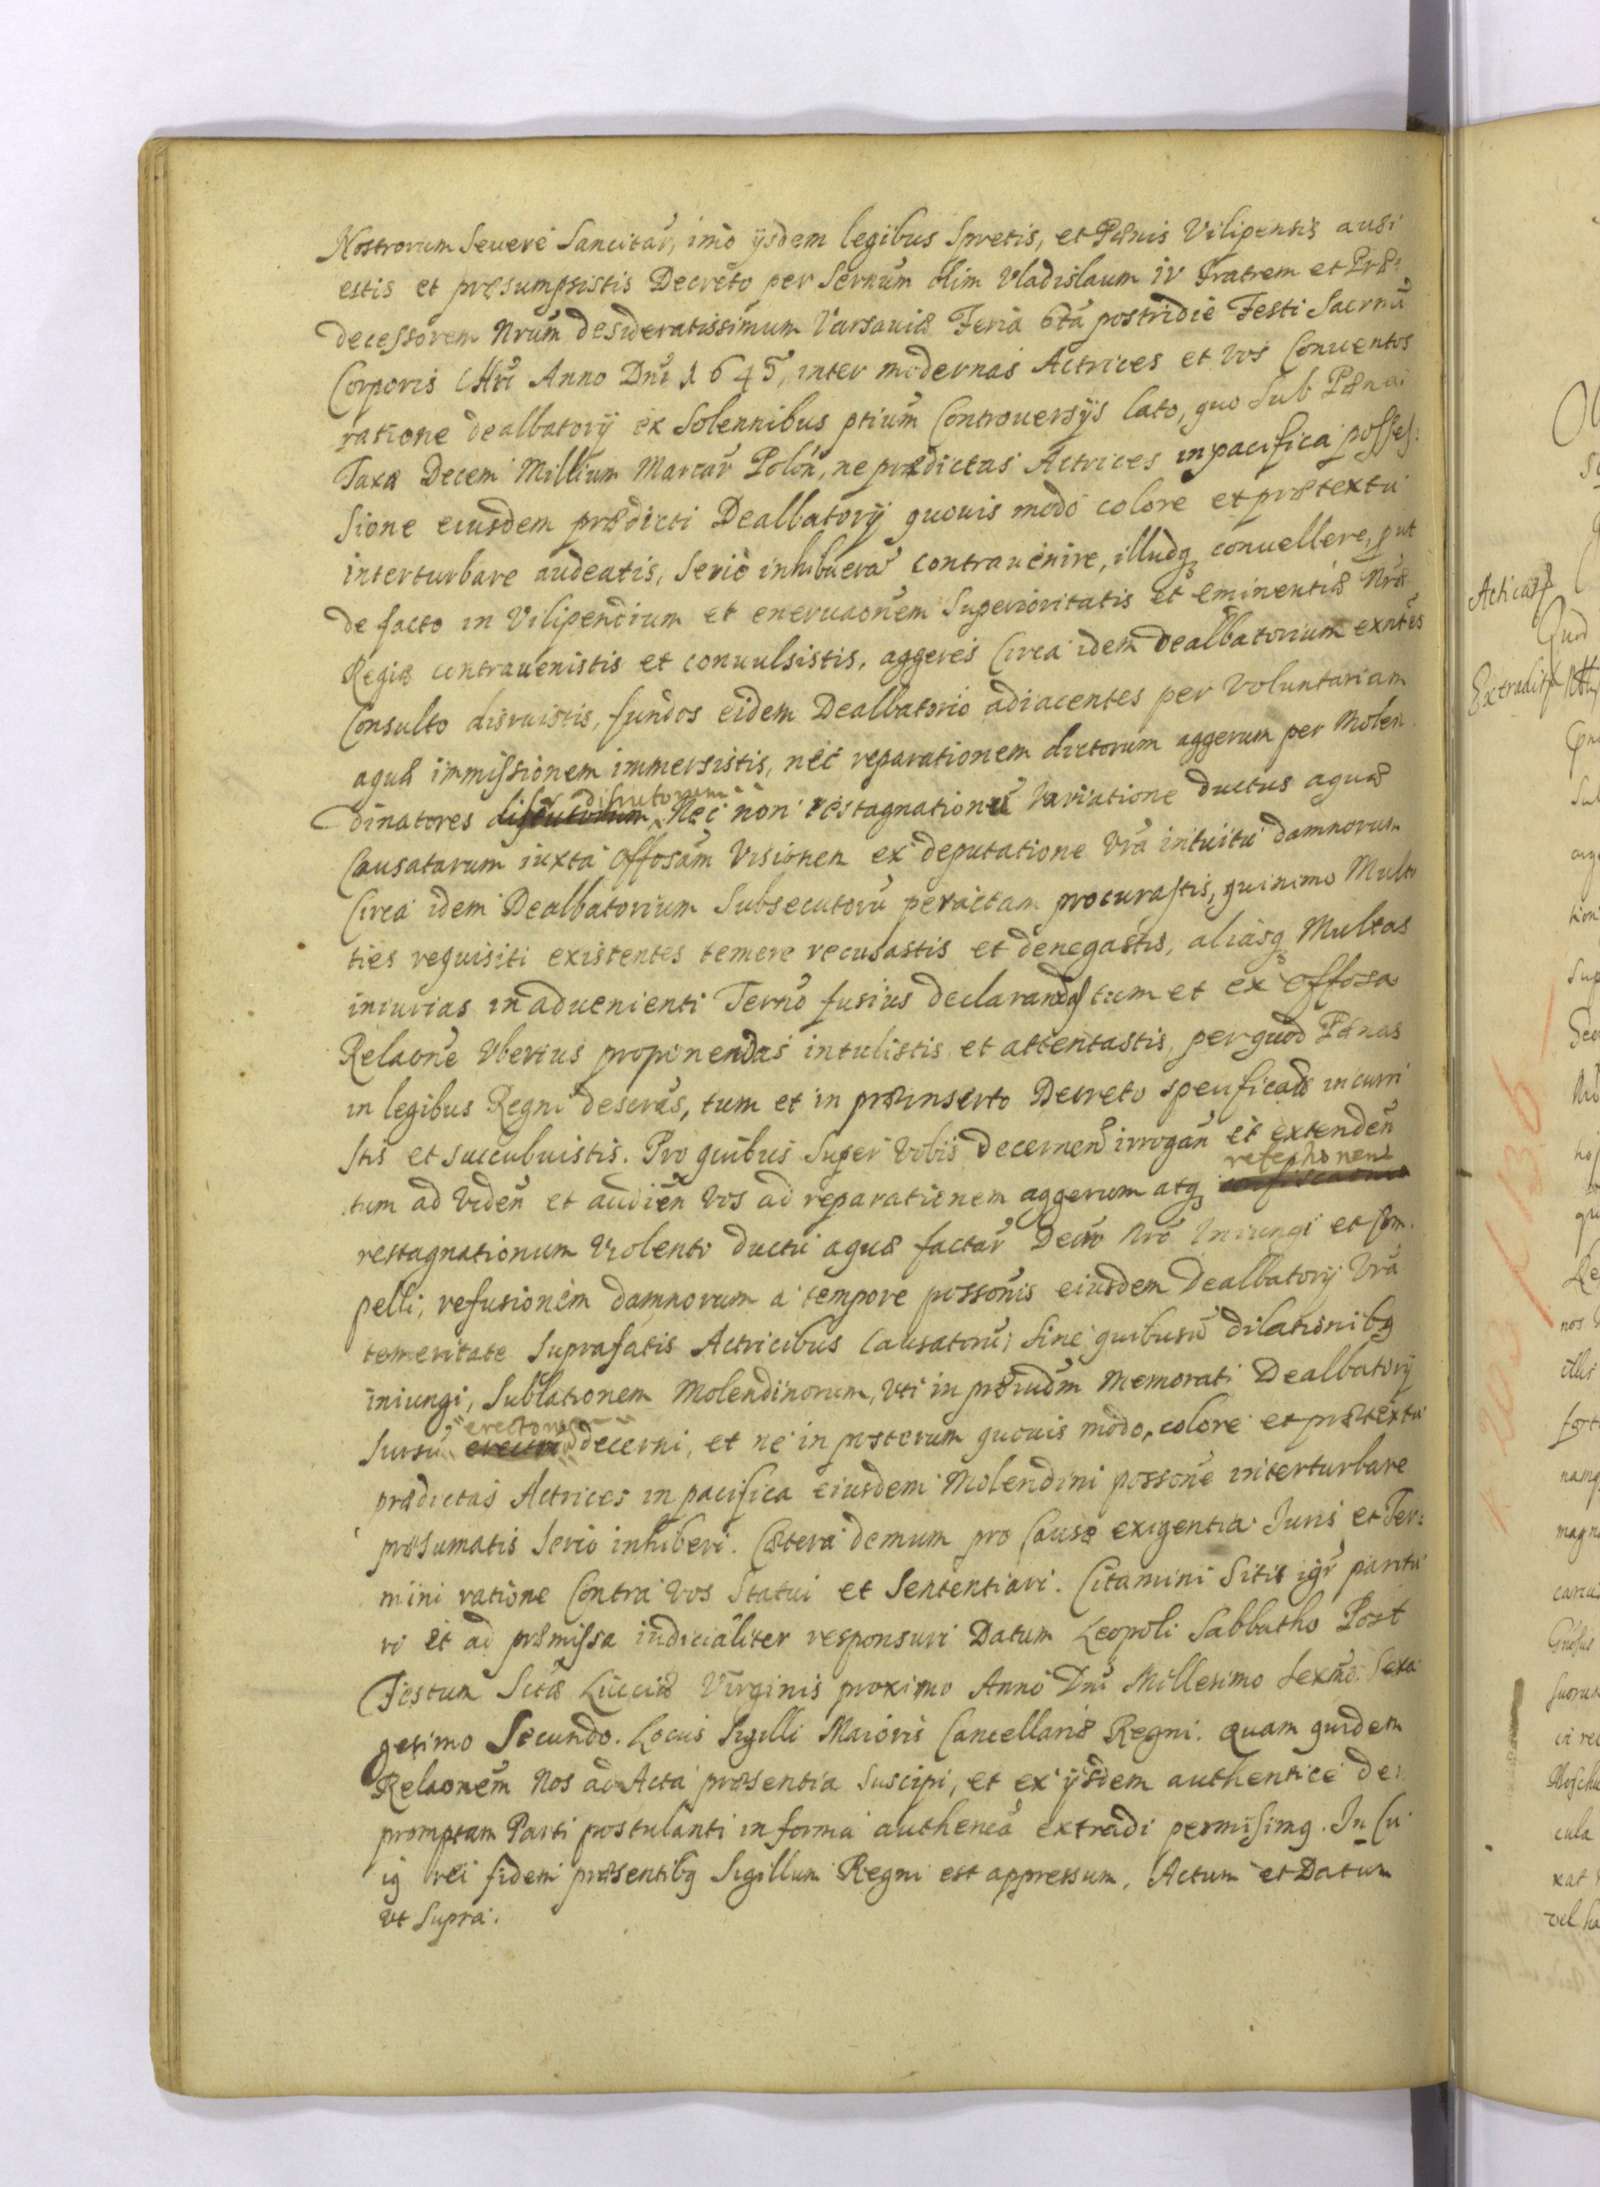 Nostrorum Seuerè Sancitar̄, imò ijsdem legibus Spretis, et Pænis Vilipensis ausi
estis et præsumpsistis Decreto per Sernūm olim Vladislaum IV Fratrem et Præ:
decessorem Nrūm desideratissimum Varsauiæ Feria 6ta postridiè Festi Sacrmi
Corporis Chri Anno Dni 1645, inter modernas Actrices et vos Conuentos
ratione dealbatorij ex Solennibus ptium Controuersijs lato, quo sub Pæna
Taxa Decem Millium Marcar̄ Polon̄, ne prædictas Actrices in pacifica posses:
sione eiusdem prædicti Dealbatorij quouis modo colore et prætextu
interturbare audeatis, seriò inhibuera contrauenire, illudq conuellere, put
de facto in Vilipendium et eneruaonem Superioritatis et eminentiæ Nræ
Regiæ contrauenistis et conuulsistis, aggeres Circa idem Dealbatorium exntes
Consulto disruistis, fundos eidem Dealbatorio adiacentes per Voluntariam
aquæ immissionem immersistis, nec reparationem dictorum aggerum per Molen
dinatores disrutorum Nec non restagnationis variatione ductus aquæ
Causatarum iuxta Offosam Visionem ex deputatione Vra intuitu damnorum
Circa idem Dealbatorium Subsecutoru peractam procurastis, quinimo Multo
ties requisiti existentes temere recusastis et denegastis, aliasq Multas
iniurias in aduenienti Terno fusius declarandas tum et ex Offosa
Relaone Vberius proponendas intulistis et attentastis, per quod Pænas
in legibus Regni descrās, tum et in præinserto Decreto specificatas incurri
stis et succubuistis. Pro quibus super Vobis decernen̄ irrogan̄ et extenden̄
tum ad viden̄ et audien̄ Vos ad reparationem aggerum atq refectionem
restagnationum Violento ductu aquæ factar̄ Decto Nro Iniungi et com
pelli, refusionem damnorum a tempore possonis eiusdem Dealbatorij Vra
temeritate Suprafatis Actricibus Causatoru, sine quibusuis dilationibq
iniungi, Sublationem Molendinorum, Vti in præiudm Memorati Dealbatorij
sursu erectoru decerni, et ne in posterum quouis modo, colore et prætextu
prædictas Actrices in pacifica eiusdem Molendini possone interturbare
præsumatis Seriò inhiberi. Cætera demum pro Causæ exigentia Iuris et Ter:
mini ratione Contra vos Statui et Sententiari. Citamini Sitis igr paritu
ri et ad præmissa iudicialiter responsuri Datum Leopoli Sabbatho Post
Festum Sctæ Luciæ Virginis proximo Anno Dni Millesimo Sexmo Sexa
gesimo Secundo. Locus Sigilli Maioris Cancellariæ Regni. Quam quidem
Relaonem Nos ad Acta præsentia suscipi, et ex ijsdem authenticè de
promptam Parti postulanti in forma authenca extradi permisimq. In Cu
iq rei fidem præsentibq Sigillum Regni est appressum. Actum et Datum
vt Supra.